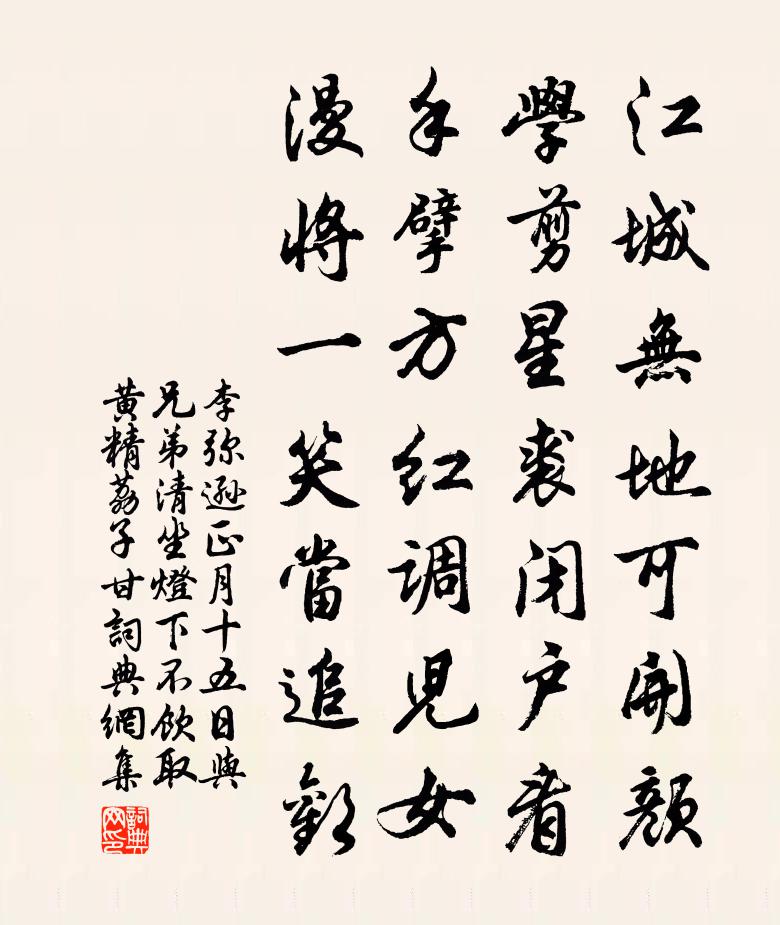 江城無地可開顏
學剪星裘闭户看
手擘方红調兒女
漫將一笑當追歡
李弥遜正月十五日與
兄弟清坐燈下不飲取
黄精荔子甘詞典網集
詞典網印